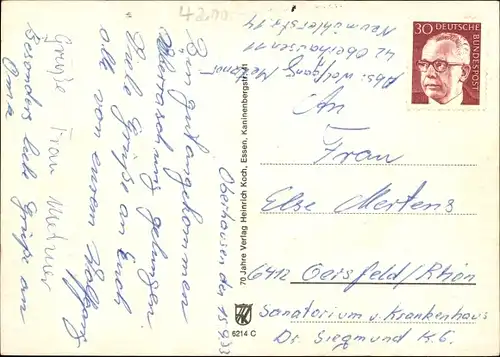 42.10
Abs: Wolfgang Metzner
42 Oberhausen 11
Neumühlerstr 14
Oberhausen den 15.9.73
Bin gut angekommen
Überraschung gelungen
Viele Grüße an Euch
alle von eurem Wolfgang
Besonders liebe Grüße an
Oma
Grüße Frau Metzner
70 Jahre Verlag Heinrich Koch, Essen, Kaninenbergstr. 41
6214 C
30 DEUTSCHE
BUNDESPOST
An
Frau
Else Mertens
6412 Gersfeld/Rhön
Sanatorium u. Krankenhaus
Dr. Siegmund K.G.